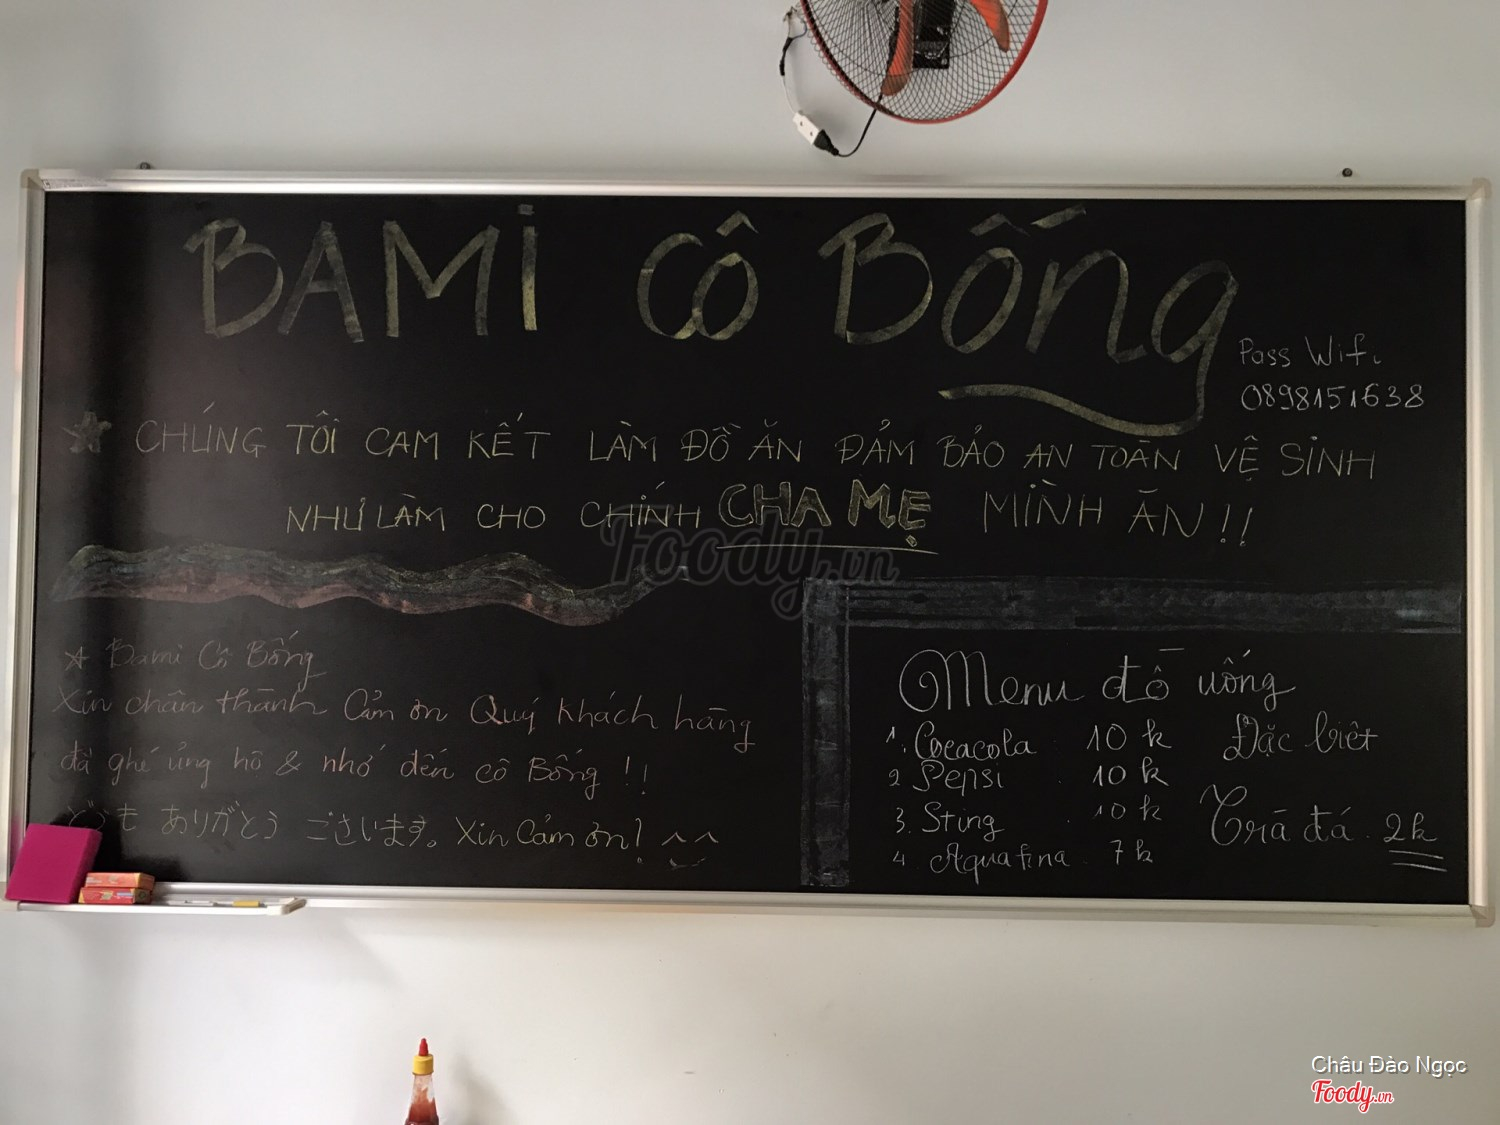 BAMi Cô Bống
Pass Wifi
0898151638
CHÚNG TÔI CAM KẾT LÀM ĐỒ ĂN ĐẢM BẢO AN TOÀN VỆ SINH
NHƯ LÀM CHO CHÍNH CHA MẸ MÌNH ĂN!!
Foody.vn
Bami Cô Bống
Xin chân thành Cảm ơn Quý khách hàng
đã ghé ủng hộ & nhớ đến cô Bống !!
どうも ありがとう ございます。 Xin Cảm ơn! ^^
Menu đồ uống
1. Cocacola 10k
2 Pepsi 10k
3. Sting 10k
4 Aquafina 7k
Đặc biệt
Trà đá. 2k
Châu Đào Ngọc
Foody.vn